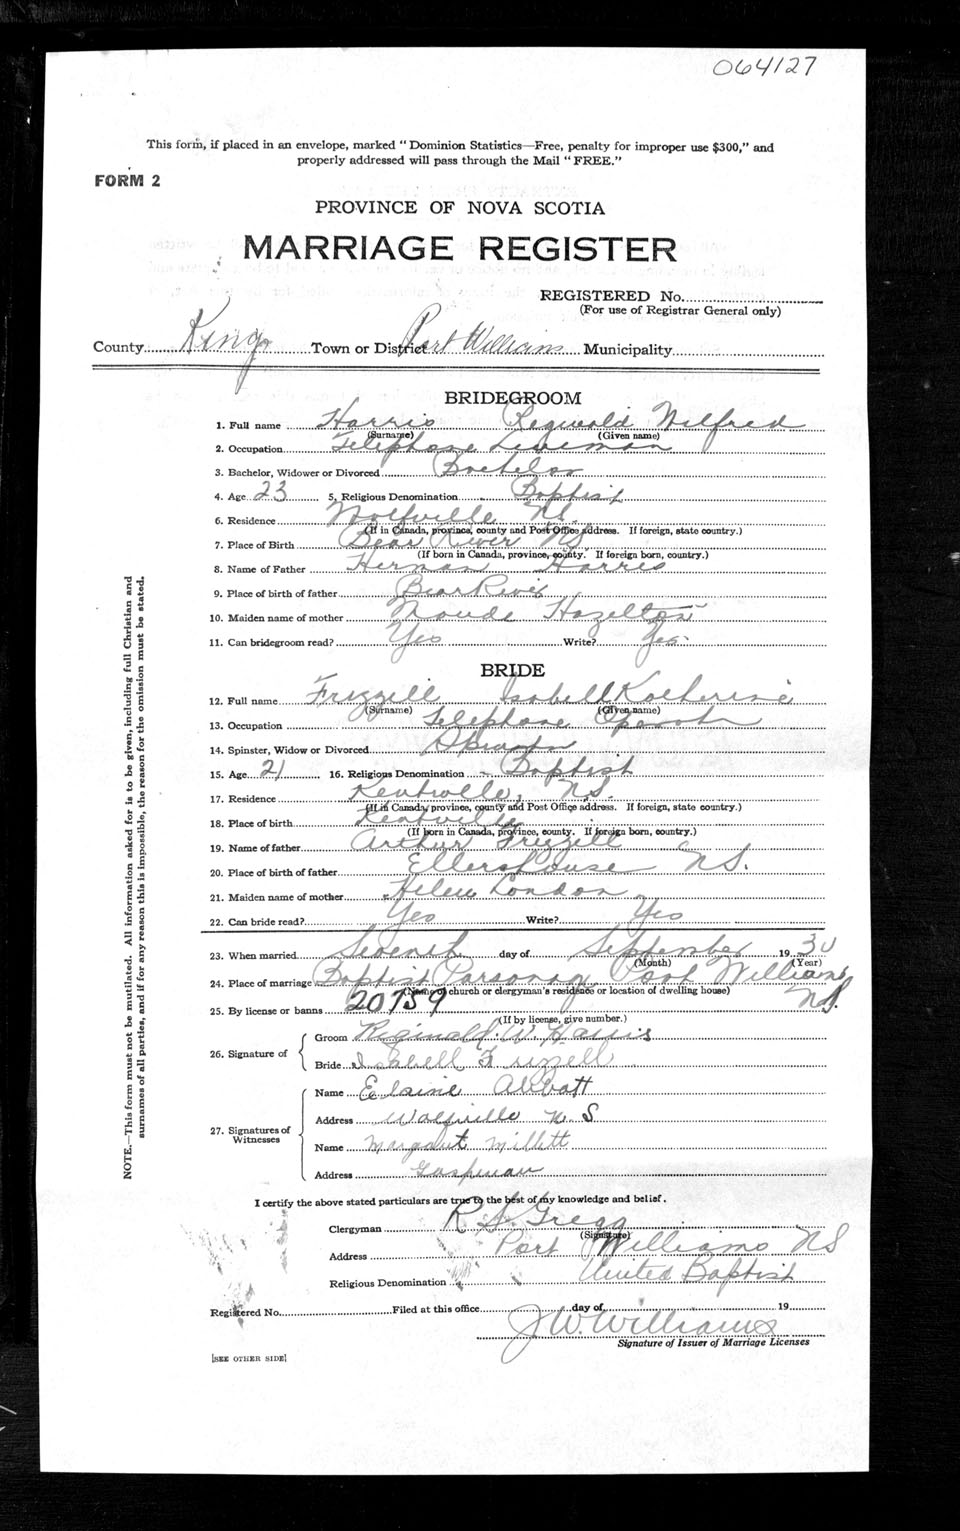 064127
This form, if placed in an envelope, marked "Dominion Statistics—Free, penalty for improper use $300," and
properly addressed will pass through the Mail "FREE."
FORM 2
PROVINCE OF NOVA SCOTIA
MARRIAGE REGISTER
REGISTERED No.
(For use of Registrar General only)
County Kings Town or District Port Williams Municipality
BRIDEGROOM
1. Full name Harris Reginald Wilfred
(Surname) (Given name)
2. Occupation Telephone Lineman
3. Bachelor, Widower or Divorced Bachelor
4. Age 23 5. Religious Denomination Baptist
6. Residence Wolfville N.S.
(If in Canada, province, county and Post Office address. If foreign, state country.)
7. Place of Birth Bear River N.S.
(If born in Canada, province, county. If foreign born, country.)
8. Name of Father Herman Harris
9. Place of birth of father Bear River
10. Maiden name of mother Maude Hazelton
11. Can bridegroom read? Yes Write? Yes
BRIDE
12. Full name Frizzell Isabell Katherine
(Surname) (Given name)
13. Occupation Telephone Operator
14. Spinster, Widow or Divorced Spinster
15. Age 21 16. Religious Denomination Baptist
17. Residence Kentville, N.S.
(If in Canada, province, county and Post Office address. If foreign, state country.)
18. Place of birth Kentville
(If born in Canada, province, county. If foreign born, country.)
19. Name of father Arthur Frizzell
20. Place of birth of father Ellershouse N.S.
21. Maiden name of mother Helen London
22. Can bride read? Yes Write? Yes
23. When married Seventh day of September 1930
(Month) (Year)
24. Place of marriage Baptist Parsonage, Port Williams N.S.
(Name of church or clergyman's residence, or location of dwelling house)
25. By license or banns 20759
(If by license, give number.)
26. Signature of
Groom Reginald W Harris
Bride Isabell Frizzell
27. Signatures of Witnesses
Name Elaine Abbott
Address Wolfville N.S
Name Margaret Millett
Address Gaspereau
I certify the above stated particulars are true to the best of my knowledge and belief.
Clergyman R S. Gregg
(Signature)
Address Port Williams NS
Religious Denomination United Baptist
Registered No. Filed at this office day of 19
J W. Williams
Signature of Issuer of Marriage Licenses
[SEE OTHER SIDE]
NOTE.—This form must not be mutilated. All information asked for is to be given, including full Christian and
surnames of all parties, and if for any reason this is impossible, the reason for the omission must be stated.